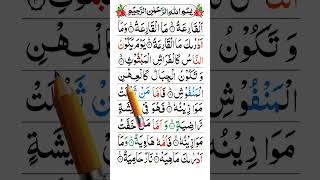 بِسْمِ اللّٰهِ الرَّحْمٰنِ الرَّحِيْمِ
اَلْقَارِعَةُ ۝ مَا الْقَارِعَةُ ۝ وَمَا
اَدْرٰىكَ مَا الْقَارِعَةُ ۝ يَوْمَ يَكُوْنُ
النَّاسُ كَالْفَرَاشِ الْمَبْثُوْثِ ۝
وَتَكُوْنُ الْجِبَالُ كَالْعِهْنِ
الْمَنْفُوْشِ ۝ فَاَمَّا مَنْ ثَقُلَتْ
مَوَازِيْنُهٗ ۝ فَهُوَ فِيْ عِيْشَةٍ
رَّاضِيَةٍ ۝ وَاَمَّا مَنْ خَفَّتْ
مَوَازِيْنُهٗ ۝ فَاُمُّهٗ هَاوِيَةٌ ۝ وَمَا
اَدْرٰىكَ مَاهِيَهْ ۝ نَارٌ حَامِيَةٌ ۝